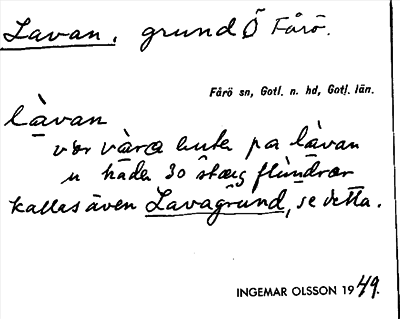 Lavan, grund Ö Fårö.
Fårö sn, Gotl. n. hd, Gotl. län.
làvan
vər vàra bute pa làvan
u hadə 30 stæig flùndrər
kallas även Lavagrund, se detta.
INGEMAR OLSSON 1949.